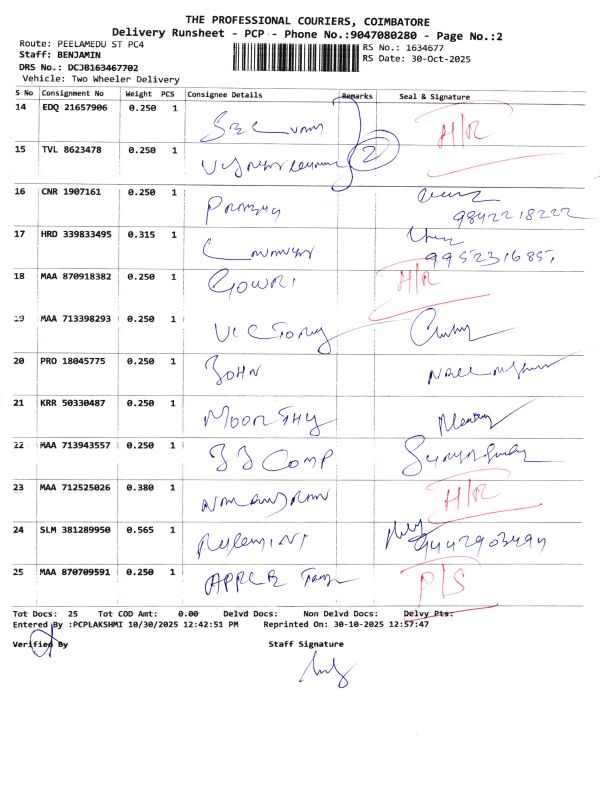 THE PROFESSIONAL COURIERS, COIMBATORE
Delivery Runsheet - PCP - Phone No.:9047080280 - Page No.:2
Route: PEELAMEDU ST PC4
RS No.: 1634677
Staff: BENJAMIN
RS Date: 30-Oct-2025
DRS No.: DCJB163467702
Vehicle: Two Wheeler Delivery
S No Consignment No Weight PCS Consignee Details Remarks Seal & Signature
14 EDQ 21657906 0.250 1 H/R
15 TVL 8623478 0.250 1 2
16 CNR 1907161 0.250 1 9842218222
17 HRD 339833495 0.315 1
18 MAA 870918382 0.250 1 GOWRI H/R
19 MAA 713398293 0.250 1 VICTORY
20 PRO 18045775 0.250 1 JOHN
21 KRR 50330487 0.250 1 MOORTHY
22 MAA 713943557 0.250 1 JJ COMP
23 MAA 712525026 0.380 1 H/R
24 SLM 381289950 0.565 1 9442903494
25 MAA 870709591 0.250 1 APPLE P/S
Tot Docs: 25 Tot COD Amt: 0.00 Delvd Docs: Non Delvd Docs: Delvy Pts:
Entered By :PCPLAKSHMI 10/30/2025 12:42:51 PM Reprinted On: 30-10-2025 12:57:47
Verified By Staff Signature